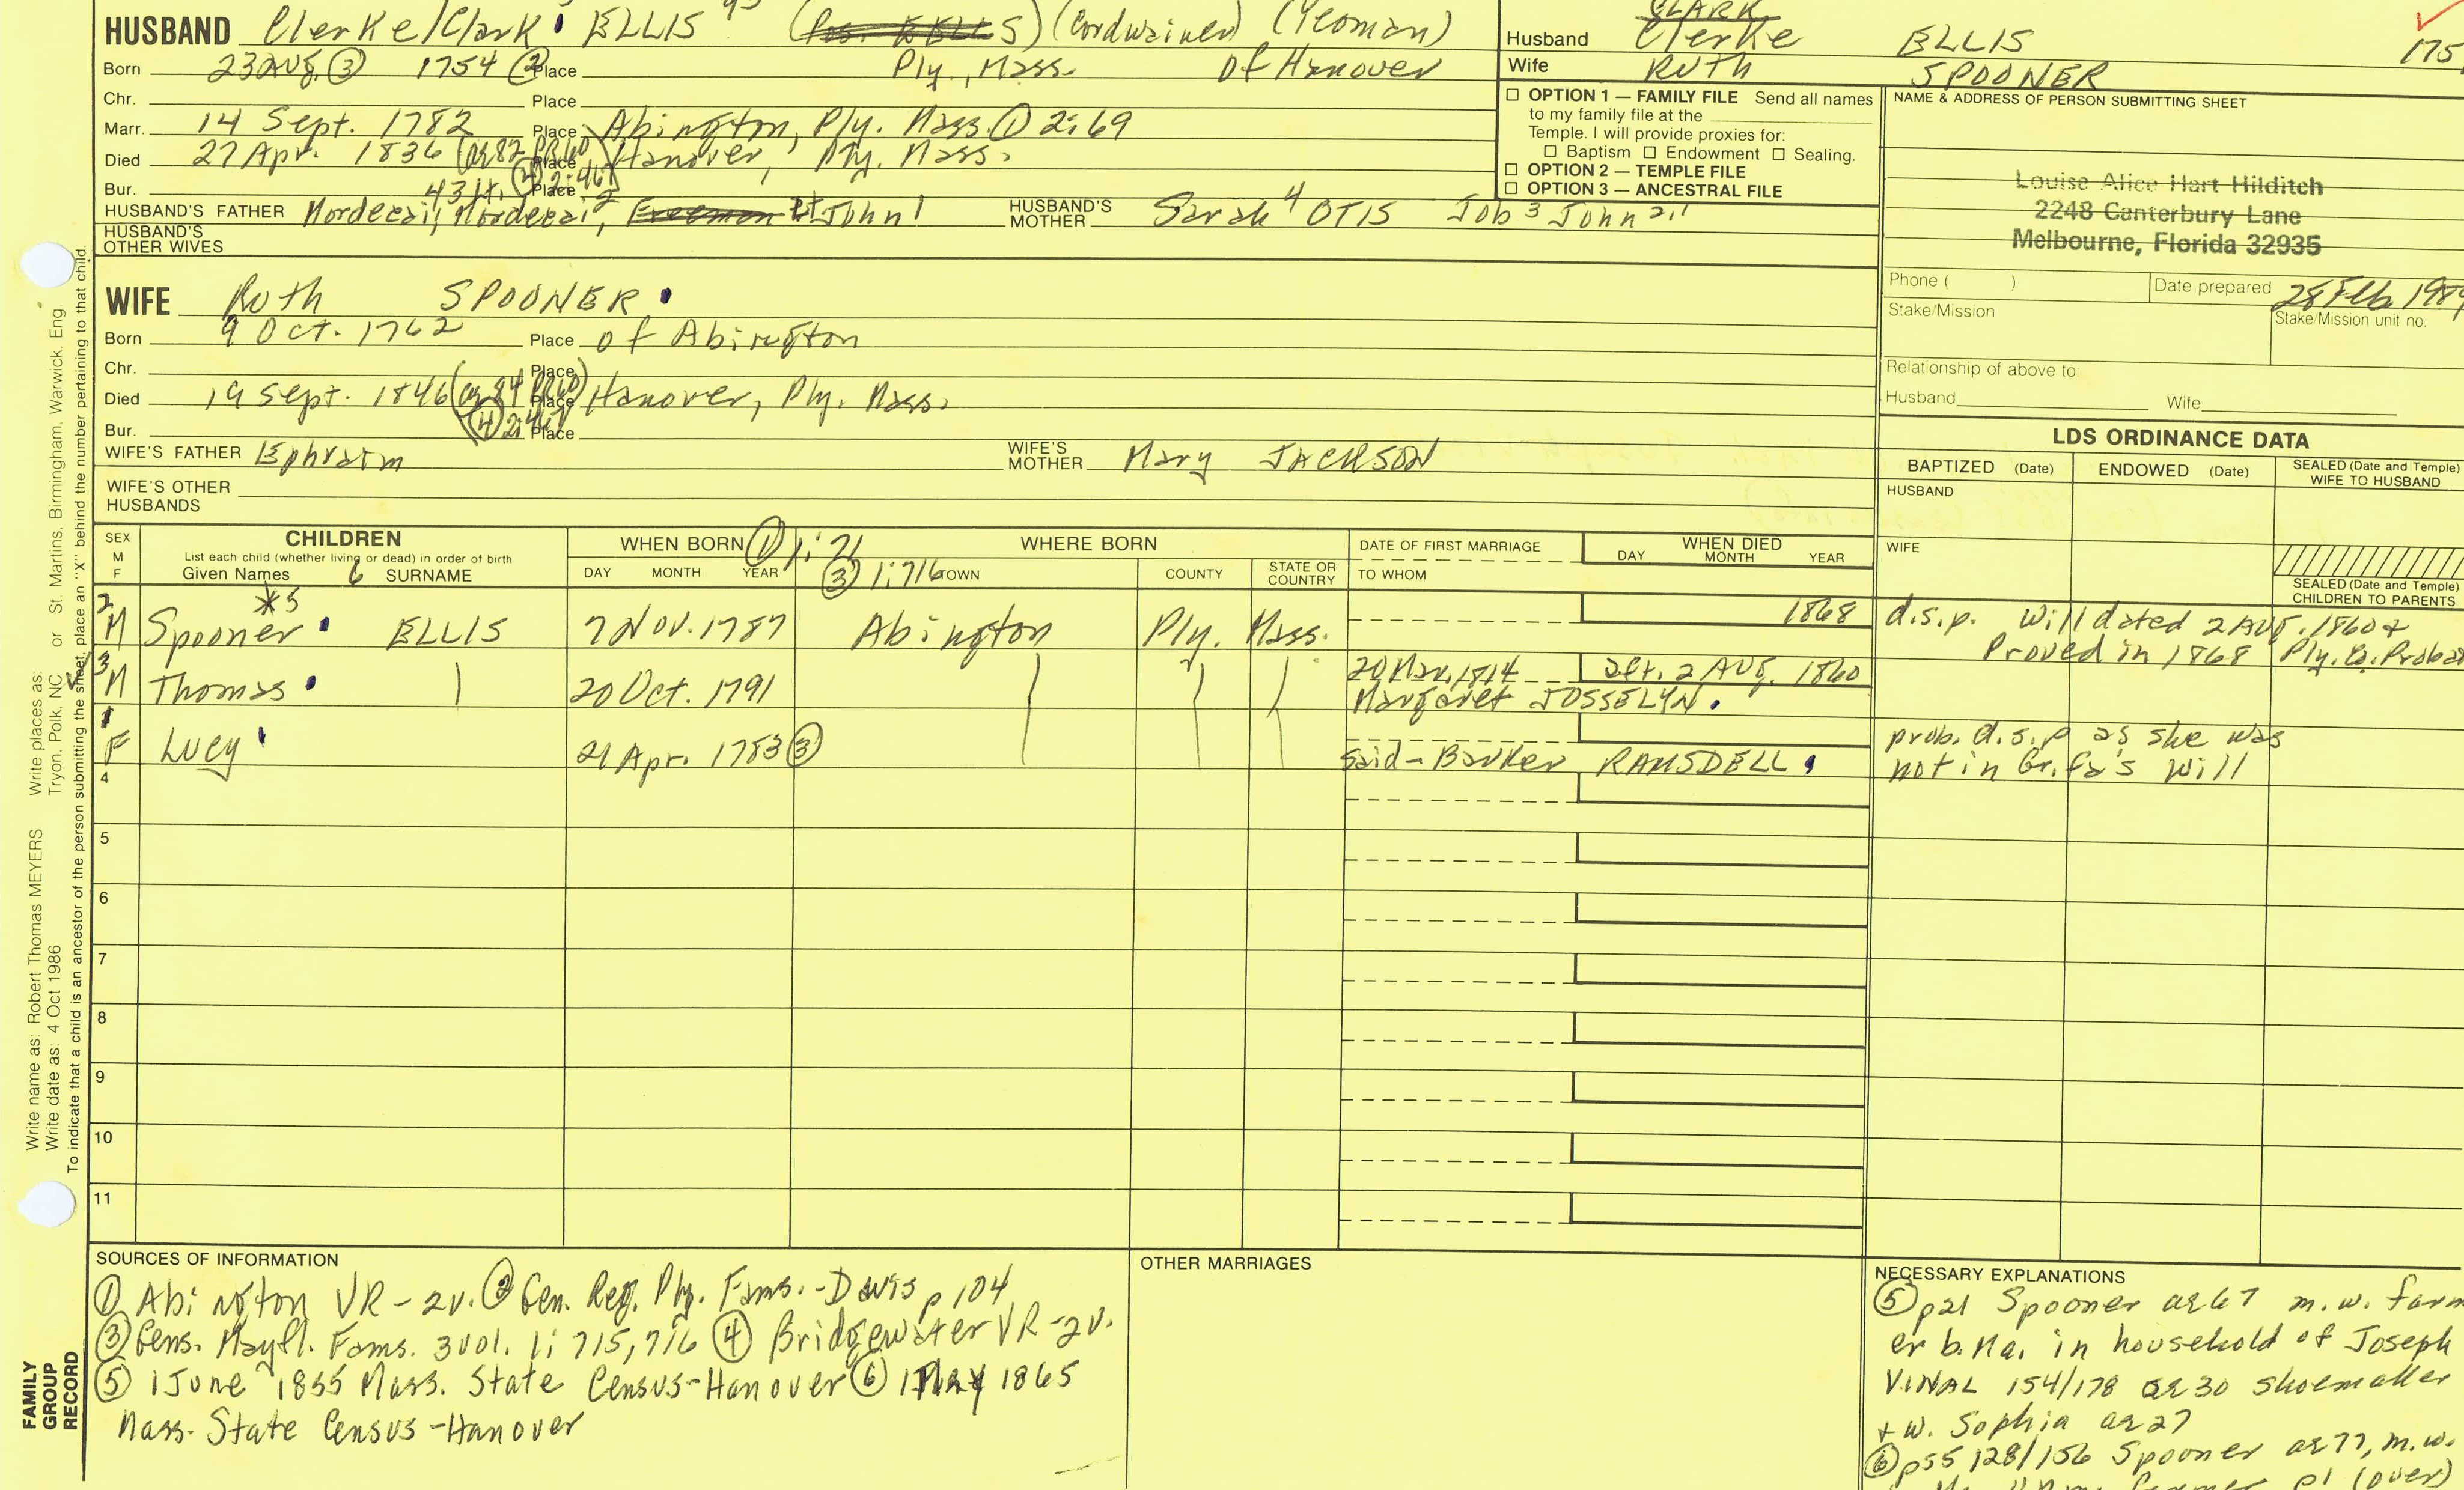 HUSBAND Clerke/Clark ELLIS (Cordwainer) (Yeoman)
Born 23 Aug. ③ 1754 ② Place Ply., Mass. of Hanover
Chr. Place
Marr. 14 Sept. 1782 Place Abington, Ply. Mass. ① 2:69
Died 27 Apr. 1836 (ae 82 PR60) Place Hanover, Ply. Mass.
Bur. 43 ④ 2:467 Place
HUSBAND'S FATHER Mordecai, Mordecai 2, Freeman Lt John 1 HUSBAND'S MOTHER Sarah 4 OTIS Job 3 John 2,1
HUSBAND'S OTHER WIVES
WIFE Ruth SPOONER
Born 9 Oct. 1762 Place of Abington
Chr. Place
Died 19 Sept. 1846 (ae 84 PR60) Place Hanover, Ply. Mass.
Bur. ④ 2:467 Place
WIFE'S FATHER Ephraim WIFE'S MOTHER Mary JACKSON
WIFE'S OTHER HUSBANDS
CLARK
Husband Clerke ELLIS 175
Wife RUTH SPOONER
☐ OPTION 1 — FAMILY FILE Send all names
to my family file at the
Temple. I will provide proxies for:
☐ Baptism ☐ Endowment ☐ Sealing.
☐ OPTION 2 — TEMPLE FILE
☐ OPTION 3 — ANCESTRAL FILE
NAME & ADDRESS OF PERSON SUBMITTING SHEET
Louise Alice Hart Hilditch
2248 Canterbury Lane
Melbourne, Florida 32935
Phone ( ) Date prepared 28 Feb 1989
Stake/Mission Stake/Mission unit no.
Relationship of above to:
Husband Wife
LDS ORDINANCE DATA
BAPTIZED (Date) ENDOWED (Date) SEALED (Date and Temple) WIFE TO HUSBAND
HUSBAND
WIFE
SEALED (Date and Temple)
CHILDREN TO PARENTS
SEX M F CHILDREN
List each child (whether living or dead) in order of birth
Given Names 6 SURNAME
WHEN BORN ① 1:71
DAY MONTH YEAR
WHERE BORN
③ 1:716 TOWN COUNTY STATE OR COUNTRY
DATE OF FIRST MARRIAGE
TO WHOM
WHEN DIED
DAY MONTH YEAR
*5
2 M Spooner ELLIS 7 Nov. 1787 Abington Ply. Mass. 1868 d.s.p. Will dated 2 Aug. 1860 +
Proved in 1868 Ply. Co. Probate
3 M Thomas 20 Oct. 1791 20 Mar. 1814 aft. 2 Aug. 1860
Margaret JOSSELYN.
1 F Lucy 21 Apr. 1783 ③ said - Barker RAMSDELL prob. d.s.p as she was
not in Gr.fa's will
4
5
6
7
8
9
10
11
SOURCES OF INFORMATION
① Abington VR - 2v. ② Gen. Reg. Ply. Fams. - Davis p 104
③ Gens. Mayfl. Fams. 3 vol. 1: 715, 716 ④ Bridgewater VR - 2v.
⑤ 1 June 1855 Mass. State Census - Hanover ⑥ 1 May 1865
Mass. State Census - Hanover
OTHER MARRIAGES
NECESSARY EXPLANATIONS
⑤ p21 Spooner ae 67 m.w. farm
er b. Ma. in household of Joseph
VINAL 154/178 ae 30 shoemaker
+ w. Sophia ae 27
⑥ p55 128/156 Spooner ae 77, m.w.
(over)
Write name as: Robert Thomas MEYERS Write places as:
Write date as: 4 Oct 1986 Tryon. Polk. NC or St Martins. Birmingham. Warwick. Eng
To indicate that a child is an ancestor of the person submitting the sheet, place an "X" behind the number pertaining to that child.
FAMILY
GROUP
RECORD